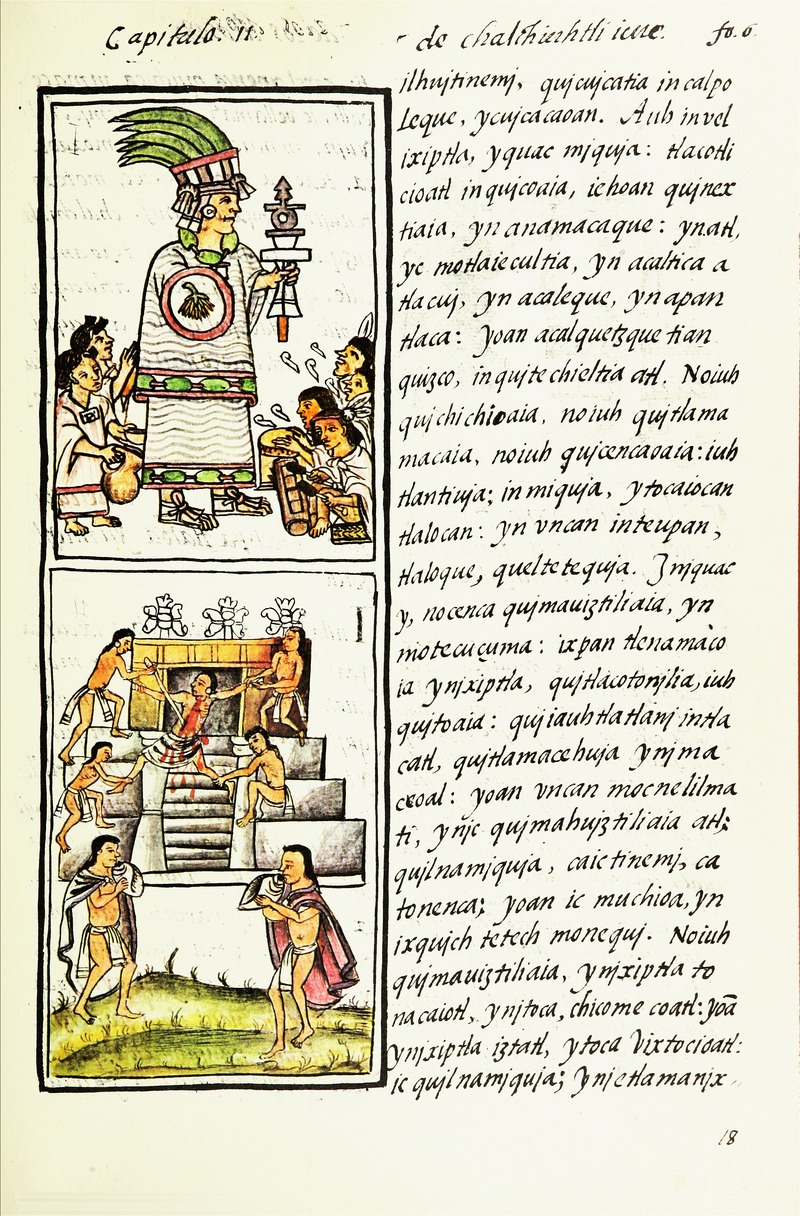 Capitulo. 11 de chalchiuhtli icue. fo. 6.
ilhujtinemj, qujcujcatia in calpo
leque, ycujcacaoan. Auh in vel
ixiptla, yquac mjquja: tlacotli
cioatl in qujcoaia, iehoan qujnex
tiaia, yn anamacaque: yn atl,
yc motlaiecultia, yn acaltica a
tlacuj, yn acaleque, yn apan
tlaca: yoan acalquetzque tian
quizco, in quitechieltia atl. Noiuh
qujchichioaia, noiuh qujtlama
macaia, noiuh qujcencaoaia: iuh
tlantiuja; in mjquja, ytocaiocan
tlalocan: yn vncan inteupan,
tlaloque, queltetequja. Jnjquac
y, nocenca qujmauiztiliaia, yn
motecuçuma: ixpan tlenamaco
ia ynjxiptla, qujtlacotonjlia, iuh
qujtoaia: qujiauhtlatlanj intla
catl, qujtlamacehuja ynjma
ceoal: yoan vncan mocnelilma
ti, ynjc qujmahujztiliaia atl;
qujlnamjquja, ca ic tinemj, ca
tonenca; yoan ic muchioa, yn
ixqujch tetech monequj. Noiuh
qujmauiztiliaia, ynjxiptla to
nacaiotl, ynjtoca, chicome coatl: yoã
ynjxiptla iztatl, ytoca Vixtocioatl:
ic qujlnamjquja; ynjetlamanjx
18